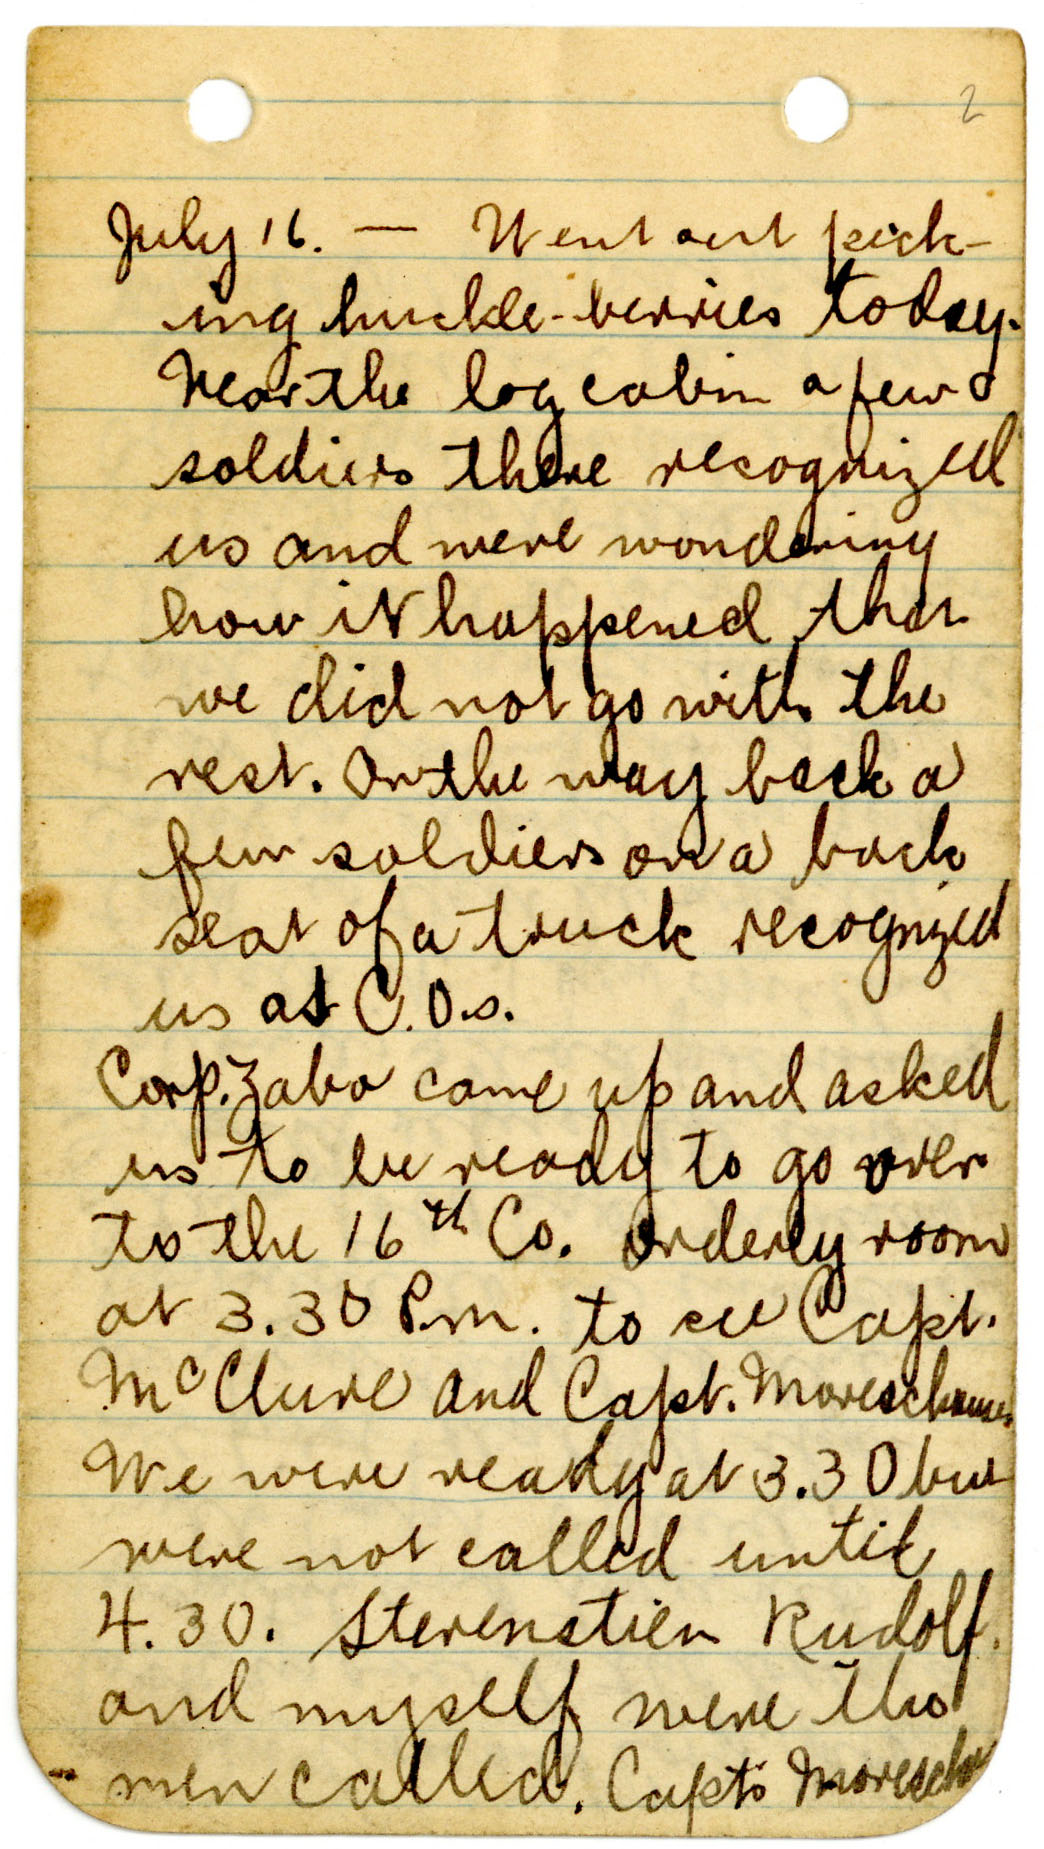 2
July 16. — Went out pick-
ing huckle-berries today.
Near the log cabin a few
soldiers there recognized
us and were wondering
how it happened that
we did not go with the
rest. On the way back a
few soldiers on a back
seat of a truck recognized
us as C.O.s.
Corp. Zabo came up and asked
us to be ready to go over
to the 16th Co. orderly room
at 3.30 P.m. to see Capt.
McClure and Capt.
We were ready at 3.30 but
were not called until
4.30. Sterenstien Rudolf.
and myself were the
men called. Capts